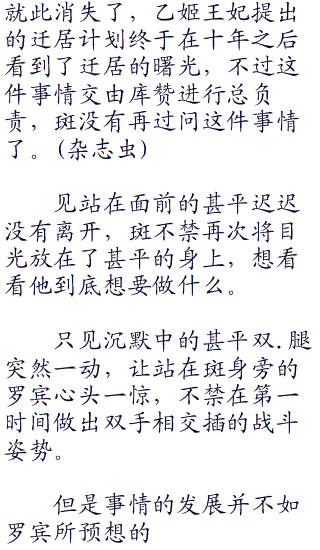 就此消失了，乙姬王妃提出
的迁居计划终于在十年之后
看到了迁居的曙光，不过这
件事情交由库赞进行总负
责，斑没有再过问这件事情
了。(杂志虫)
见站在面前的甚平迟迟
没有离开，斑不禁再次将目
光放在了甚平的身上，想看
看他到底想要做什么。
只见沉默中的甚平双.腿
突然一动，让站在斑身旁的
罗宾心头一惊，不禁在第一
时间做出双手相交插的战斗
姿势。
但是事情的发展并不如
罗宾所预想的